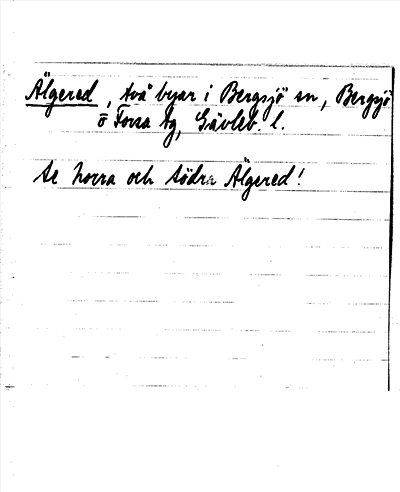 Älgered, två byar i Bergsjö sn, Bergsjö
o Forsa tg, Gävleb. l.
se norra och södra Älgered!